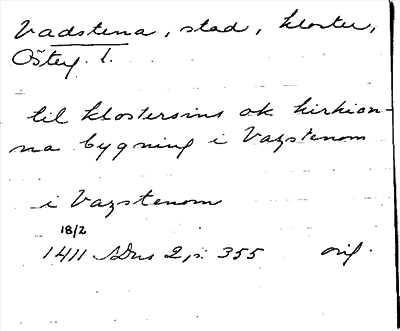 Vadstena, stad, kloster,
Östg. l.
til klostersins ok kirkion-
na bygning i Vazstenom
i Vazstenom
18/2
1411 SDns 2, s. 355 orig.